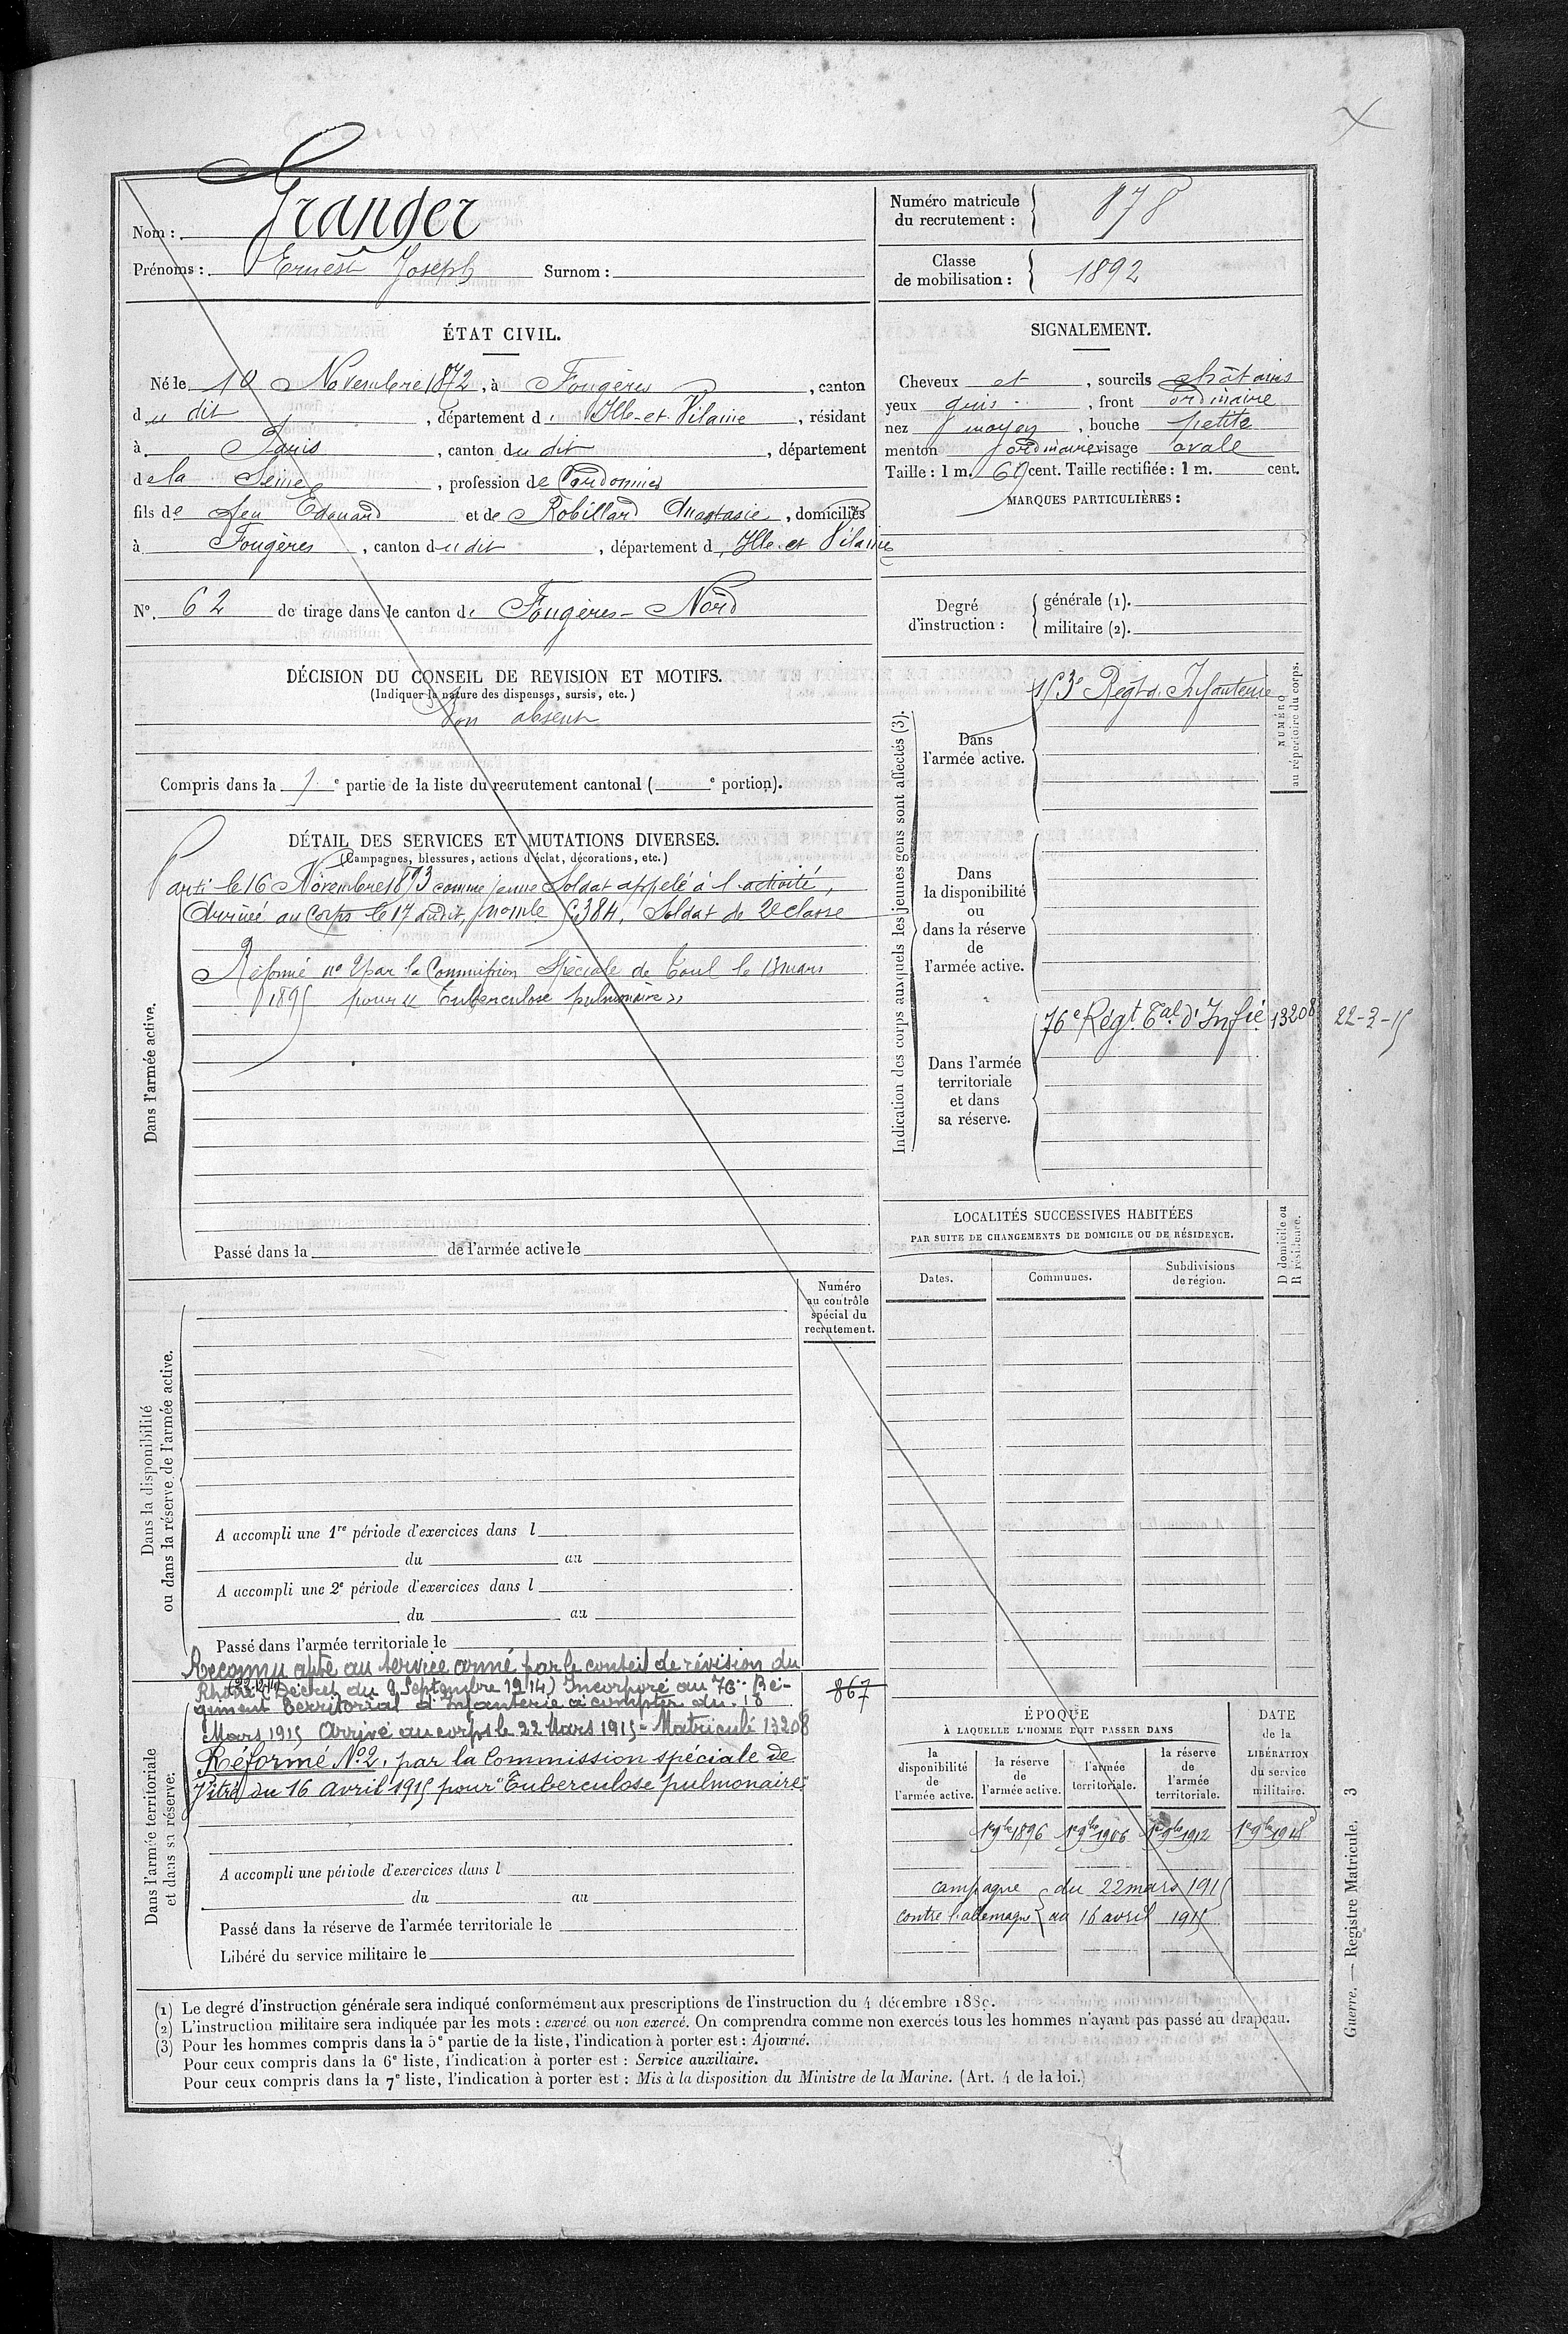 Nom : Granger
Prénoms : Ernest Joseph Surnom :
Numéro matricule du recrutement : 878
Classe de mobilisation : 1892
ÉTAT CIVIL.
Né le 10 Novembre 1872, à Fougères, canton
du dit, département d' Ille-et-Vilaine, résidant
à Paris, canton du dit, département
de la Seine, profession de Cordonnier
fils de feu Edouard et de Robillard Anastasie, domiciliés
à Fougères, canton du dit, département d'Ille et Vilaine
N° 62 de tirage dans le canton de Fougères-Nord
SIGNALEMENT.
Cheveux et, sourcils châtains
yeux gris, front ordinaire
nez moyen, bouche petite
menton ordinaire visage ovale
Taille : 1 m. cent. Taille rectifiée : 1 m. cent.
MARQUES PARTICULIÈRES :
Degré d'instruction : générale (1).
militaire (2).
DÉCISION DU CONSEIL DE REVISION ET MOTIFS.
(Indiquer la nature des dispenses, sursis, etc.)
Bon absent
Compris dans la 1e partie de la liste du recrutement cantonal ( e portion).
DÉTAIL DES SERVICES ET MUTATIONS DIVERSES.
(Campagnes, blessures, actions d'éclat, décorations, etc.)
Dans l'armée active.
Parti le 16 Novembre 1893 comme jeune Soldat appelé à l'activité,
Arrivé au Corps le 17 dudit, Soldat de 2e classe
Réformé n° 2 par la Commission Spéciale de Toul le 13 mars
1895 pour « Tuberculose pulmonaire »
Passé dans la de l'armée active le
Indication des corps auxquels les jeunes gens sont affectés (3).
NUMÉRO au répertoire du corps.
Dans l'armée active.
153e Régt d'Infanterie
Dans la disponibilité ou dans la réserve de l'armée active.
Dans l'armée territoriale et dans sa réserve.
76e Régt Tal d'Infie 13208 22-3-15
LOCALITÉS SUCCESSIVES HABITÉES
PAR SUITE DE CHANGEMENTS DE DOMICILE OU DE RÉSIDENCE.
Dates. Communes. Subdivisions de région. D domicile ou R résidence.
Numéro au contrôle spécial du recrutement.
Dans la disponibilité ou dans la réserve de l'armée active.
A accompli une 1re période d'exercices dans l
du au
A accompli une 2e période d'exercices dans l
du au
Passé dans l'armée territoriale le
Dans l'armée territoriale et dans sa réserve.
Reconnu apte au service armé par le conseil de révision du
Rhône (Décret du 9 Septembre 1914) Incorporé au 76e Ré-
giment Territorial d'Infanterie à compter du 18
Mars 1915 Arrivé au corps le 22 Mars 1915 - Matriculé 13208
Réformé N° 2, par la Commission spéciale de
Vitré du 16 Avril 1915 pour "Tuberculose pulmonaire"
867
A accompli une période d'exercices dans l
du au
Passé dans la réserve de l'armée territoriale le
Libéré du service militaire le
ÉPOQUE
À LAQUELLE L'HOMME DOIT PASSER DANS
la disponibilité de l'armée active.
la réserve de l'armée active.
l'armée territoriale.
la réserve de l'armée territoriale.
DATE de la LIBÉRATION du service militaire.
1er 9bre 1896 1er 9bre 1906 1er 9bre 1912 1er 9bre 1918
campagne du 22 mars 1915
contre l'allemagne au 16 avril 1915
(1) Le degré d'instruction générale sera indiqué conformément aux prescriptions de l'instruction du 4 décembre 1889.
(2) L'instruction militaire sera indiquée par les mots : exercé ou non exercé. On comprendra comme non exercés tous les hommes n'ayant pas passé au drapeau.
(3) Pour les hommes compris dans la 5e partie de la liste, l'indication à porter est : Ajourné.
Pour ceux compris dans la 6e liste, l'indication à porter est : Service auxiliaire.
Pour ceux compris dans la 7e liste, l'indication à porter est : Mis à la disposition du Ministre de la Marine. (Art. 4 de la loi.)
Guerre. — Registre Matricule. 3